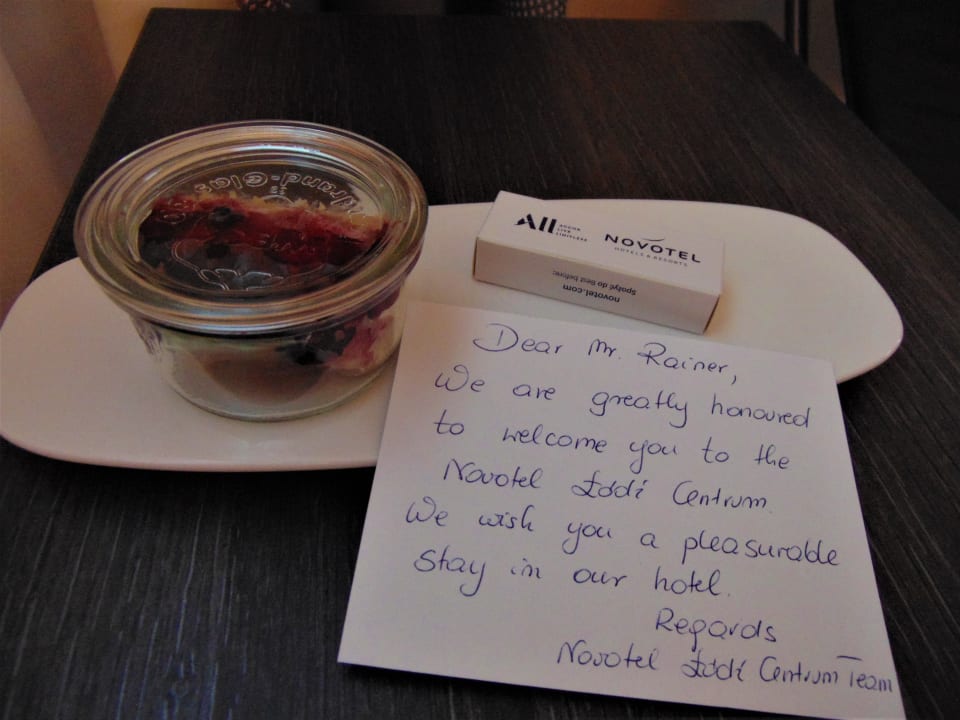 ALL
ACCOR
LIVE
LIMITLESS
NOVOTEL
HOTELS & RESORTS
novotel.com
Spożyć do Best before:
Dear Mr. Rainer,
We are greatly honoured
to welcome you to the
Novotel Łódź Centrum.
We wish you a pleasurable
stay in our hotel.
Regards
Novotel Łódź Centrum Team